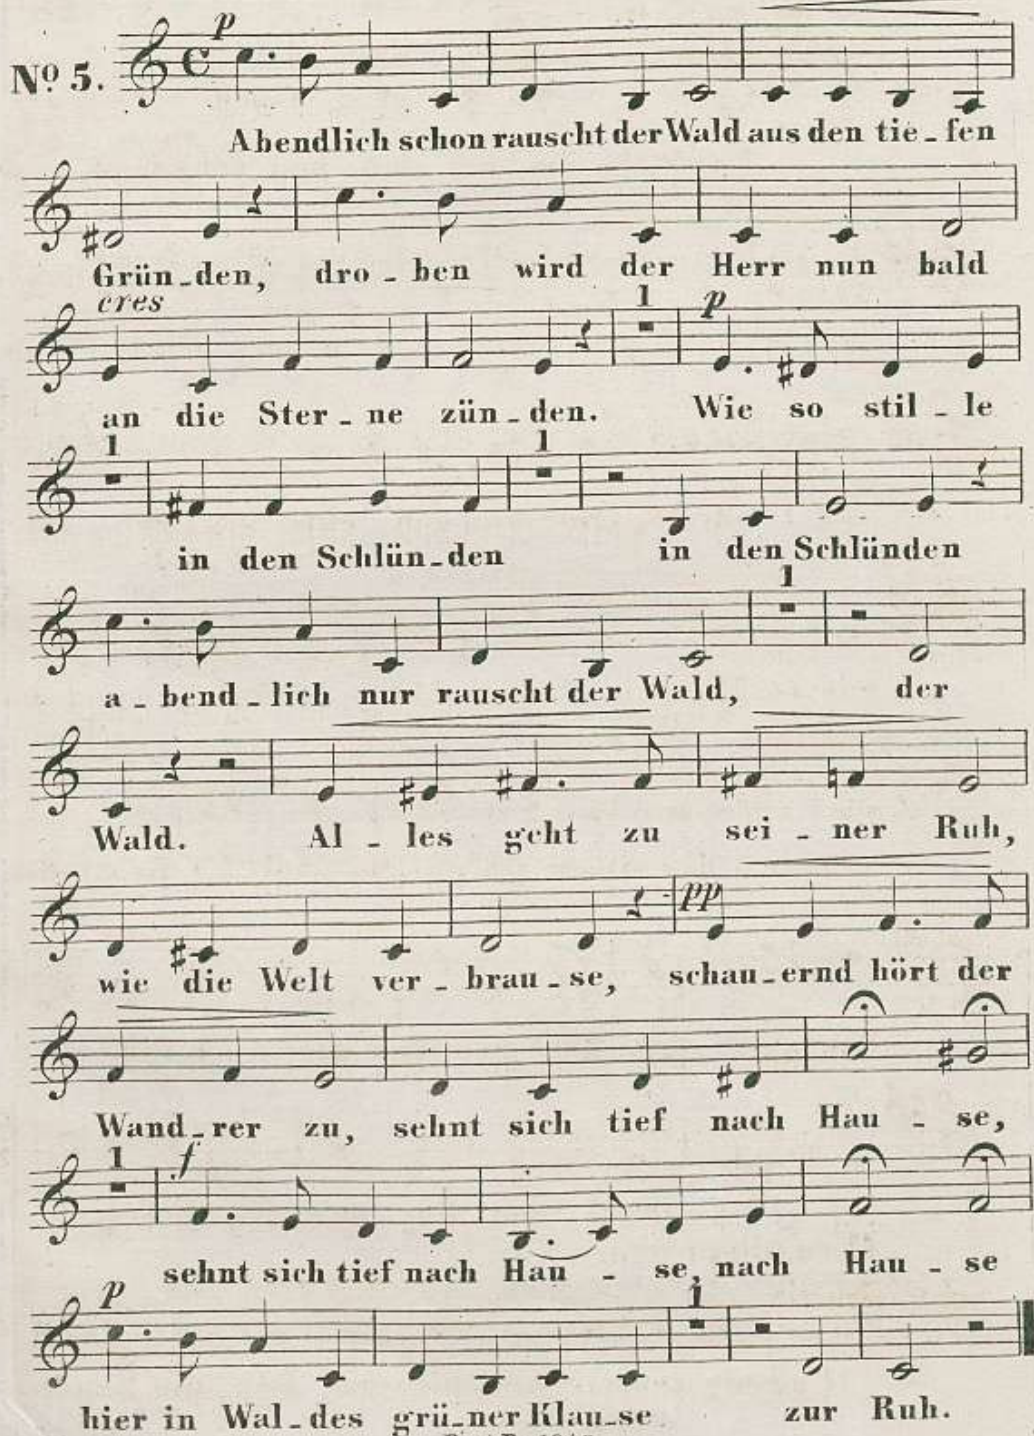 p
Nº 5.
Abendlich schon rauscht der Wald aus den tie-fen
Grün-den, dro-ben wird der Herr nun bald
cres
an die Ster-ne zün-den. Wie so stil-le
1 p
in den Schlün-den in den Schlünden
1 1
a-bend-lich nur rauscht der Wald, der
1
Wald. Al-les geht zu sei-ner Ruh,
wie die Welt ver-brau-se, schau-ernd hört der
pp
Wand-rer zu, sehnt sich tief nach Hau-se,
1 f
sehnt sich tief nach Hau-se, nach Hau-se
p 1
hier in Wal-des grü-ner Klau-se zur Ruh.